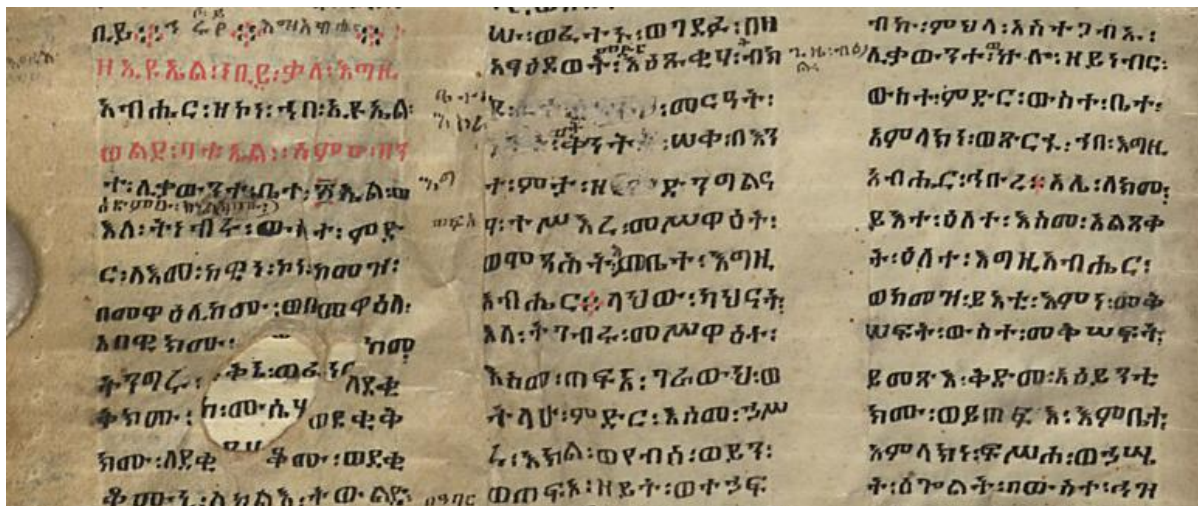 ቢይ፡፡
ዘኢዩኤል፡ነቢይ፡ቃለ፡እግዚ
አብሔር፡ዘኮነ፡ኀበ፡ኢዩኤል፡
ወልደ፡ባቱኤል፡፡ስምዑ፡ዘን
ተ፡ሊቃውንተ፡ቤተ፡፳ኤል፡ወ
እለ፡ትነብሩ፡ውስተ፡ምድ
ር፡ለእመ፡ከዊነ፡ኮነ፡ከመዝ፡
በመዋዕሊክሙ፡ወበመዋዕለ፡
አበዊክሙ፡ ከመ
ትንግሩ፡ ለደቂ
ቅክሙ፡ ወደቂቅ
ክሙ፡ለደቂ ቆሙ፡ወደቂ
ቆሙኒ፡ለካልእ፡ትውልድ፡
ሡ፡ወፈተነ፡ወገደፈ፡በዘ
አፃዕደወት፡አዕጹቂሃ፡ብክ
መርዓት፡
ሠቀ፡በእን
ተ፡ምታ፡ዘ ድንግልና
ሃ፡ተሥእረ፡መሥዋዕት፡
ወሞጻሕት፡እምቤተ፡እግዚ
አብሔር፡፡ላህው፡ካህናት፡
እለ፡ትገብሩ፡መሥዋዕተ፡
እስመ፡ጠፍአ፡ገራውህ፡ወ
ትላሁ፡ምድር፡እስመ፡ኃሥ
ረ፡እክል፡ወየብሰ፡ወይን፡
ወጠፍአ፡ዘይት፡ወተኃፍ
ብክ፡ምህላ፡አስተጋብኡ፡
ሊቃውንተ፡ኵሎ፡ዘይነብር፡
ውስተ፡ምድር፡ውስተ፡ቤተ፡
አምላክነ፡ወጽርኁ፡ኀበ፡እግዚ
አብሔር፡ኅቡረ፡፡አሌ፡ለክሙ፡
ይእተ፡ዕለተ፡እስመ፡አልጸቀ
ት፡ዕለተ፡እግዚአብሔር፡
ወከመዝ፡ይእቲ፡እምነ፡መቅ
ሠፍት፡ውስተ፡መቅሠፍት፡
ይመጽእ፡ቅድመ፡አዕይንቲ
ክሙ፡ወይጠፍእ፡እምቤተ፡
አምላክነ፡ፍሥሐ፡ወኃሤ
ት፡ዕጐልት፡በውስተ፡ኀዝ